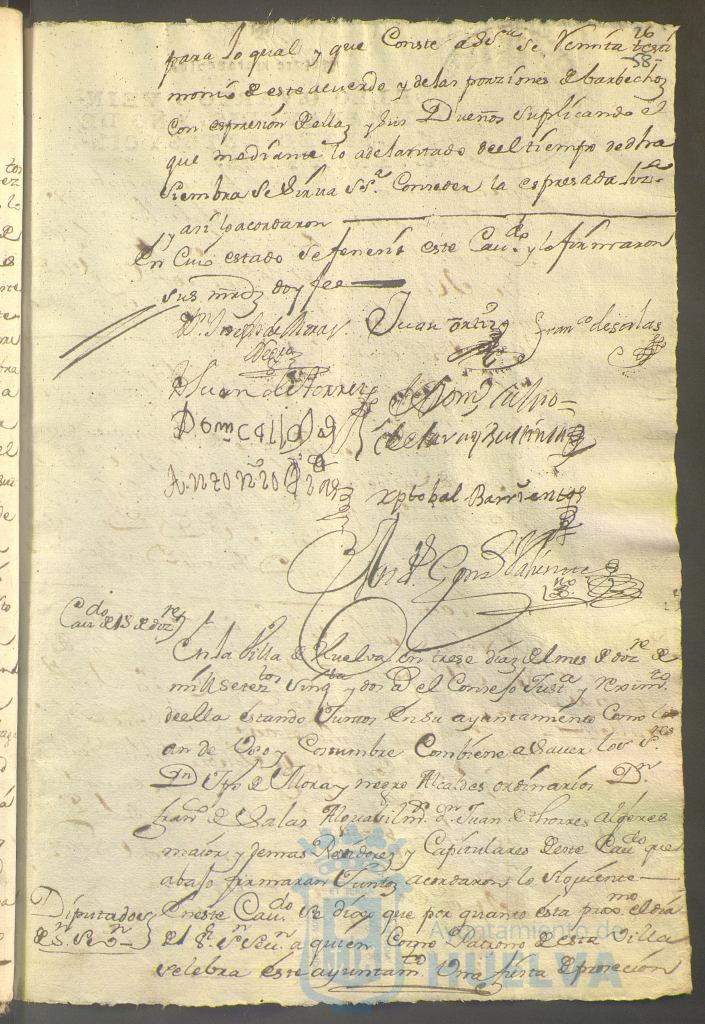 26
58
para lo qual y que Conste a dho Sr. Se Remita testi
monio de este acuerdo y de las porziones de barbechos
con espresion de ellas y sus Dueños suplicando el
que mediante lo adelantado de el tiempo de dha
siembra se sirva S.Sa. Conseder la espresada liza.
y asi lo acordaron
En Cuio estado se fenerio este Cavdo. y lo firmaron
sus mrds doy fee
Dn. Joseph de Mora y
Negro
Juan ortiz
Franco de salas
D Juan de torres
Anzonio
xptobal Barrientos
Cavdo de 13 de dozre
En la Villa de Huelva en trese dias del mes de dozre de
mill seteztos sinqta y dos as. el Consejo Justa. y reximto
de ella estando Juntos en su ayuntamiento Como lo
an de Uso y Costumbre Combiene a Saver los Sres
Dn Jph de Mora y negro Alcaldes ordinarios Dn
Franco de Salas Alguazil mr. Dn Juan de thorres
maior y demas Rexidores y Capitulares de este Cavdo que
abajo firmaran Juntos acordaron lo siguiente
Diputados
En este Cavdo se dixo que por quanto esta proxmo el dia
de Sn. Sevn. a quien Como Patrono de esta Villa
selebra este ayuntamto. Una fiesta de prosecion
Ayuntamiento de
HUELVA